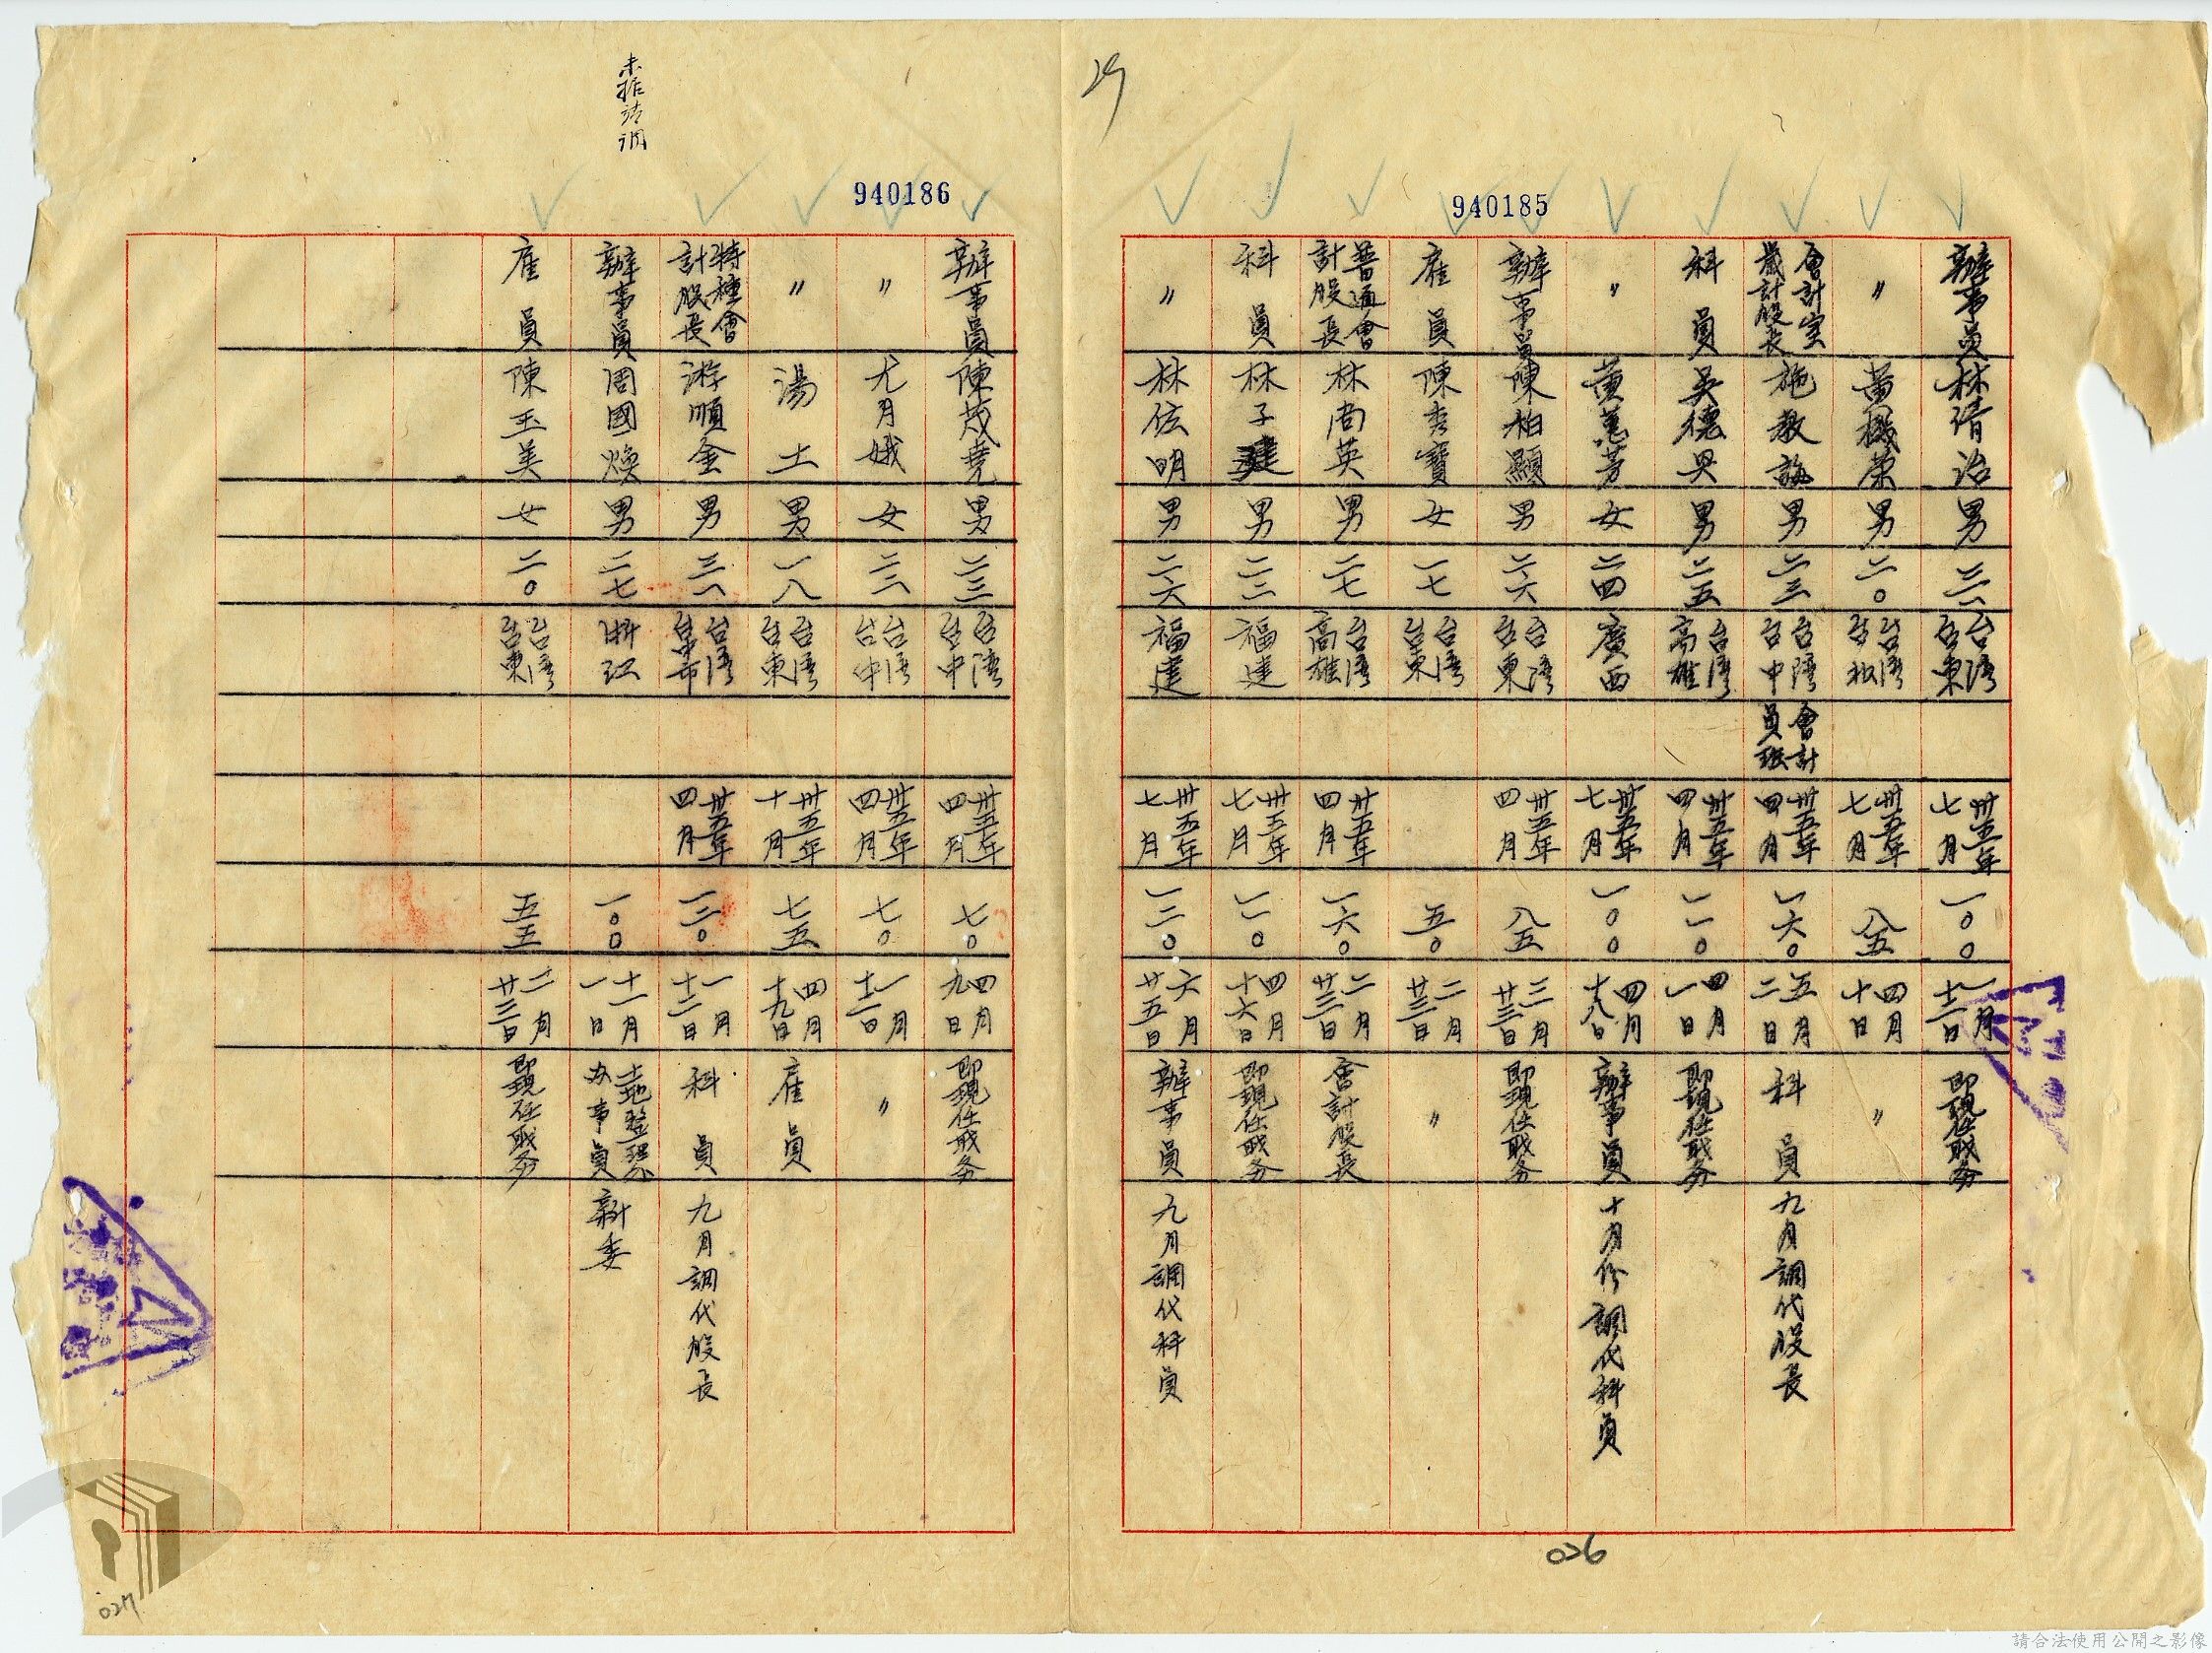 29
940185
辦事員 林清治 男 三一 台灣台東 卅五年七月 一〇〇 一月十一日 即現任職务
〃 黃機榮 男 二〇 台灣台北 卅五年七月 八五 四月十日 〃
會計室歲計股長 施教 男 二三 台灣台中 會計員班 卅五年四月 一六〇 五月二日 科員 九月調代股長
科員 吳德興 男 二五 台灣高雄 卅五年四月 一一〇 四月一日 即現任職务
〃 黃蕙芳 女 二四 廣西 卅五年七月 一〇〇 四月十八日 辦事員 十月份調代科員
辦事員 陳柏顯 男 二六 台灣台東 卅五年四月 八五 三月廿三日 即現任職务
雇員 陳秀寶 女 一七 台灣台東 五〇 二月廿三日 〃
普通會計股長 林尚英 男 二七 台灣高雄 卅五年四月 一六〇 二月廿三日 會計股長
科員 林子建 男 二二 福建 卅五年七月 一一〇 四月十六日 即現任職务
〃 林依明 男 二六 福建 卅五年七月 一二〇 六月廿五日 辦事員 九月調代科員
026
940186
辦事員 陳茂堯 男 二三 台灣台中 卅五年四月 七〇 四月九日 即現任職务
〃 尤月娥 女 二二 台灣台中 卅五年四月 七〇 一月十一日 〃
〃 湯土 男 一八 台灣台東 卅五年十月 七五 四月十九日 雇員
特種會計股長 游順金 男 三一 台灣台中市 卅五年四月 一三〇 一月十二日 科員 九月調代股長
未據請調
辦事員 周國煥 男 二七 浙江 一〇〇 十一月一日 土地整理处办事員 新委
雇員 陳玉美 女 二〇 台灣台東 五五 二月廿三日 即現任職务
027
請合法使用公開之影像